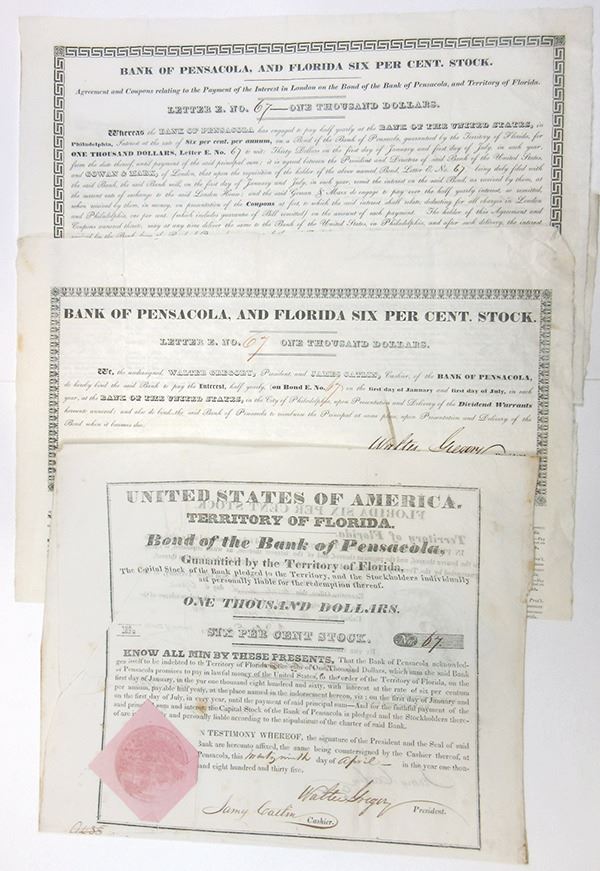 BANK OF PENSACOLA, AND FLORIDA SIX PER CENT. STOCK.
Agreement and Coupons relating to the Payment of the Interest in London on the Bond of the Bank of Pensacola, and Territory of Florida.
LETTER E. NO. 67 ONE THOUSAND DOLLARS.
Whereas the BANK OF PENSACOLA has engaged to pay half yearly at the BANK OF THE UNITED STATES, in
Philadelphia, Interest at the rate of Six per cent. per annum, on a Bond of the Bank of Pensacola, guarantied by the Territory of Florida, for
ONE THOUSAND DOLLARS, Letter E. No. 67 to wit: Thirty Dollars on the first day of January and first day of July, in each year,
from the date thereof until payment of the said principal sum; it is agreed between the President and Directors of said Bank of the United States,
and GOWAN & MARX, of London, that upon the requisition of the holder of the above named Bond, Letter E. No. 67 being duly filed with
the said Bank, the said Bank will, on the first day of January and July, in each year, remit the interest on the said Bond, as received by them, at
the current rate of exchange to the said London House; and the said Gowan & Marx do engage to pay over the half yearly interest, so remitted,
when received by them, in money, on presentation of the Coupons at foot, to which the said interest shall relate, deducting for all charges in London
and Philadelphia, one per cent. (which includes guarantee of Bill remitted) on the amount of each payment. The holder of this Agreement and
Coupons annexed thereto, may at any time deliver the same to the Bank of the United States, in Philadelphia, and after such delivery, the interest
BANK OF PENSACOLA, AND FLORIDA SIX PER CENT. STOCK.
LETTER E. NO. 67 ONE THOUSAND DOLLARS.
We, the undersigned, WALTER GREGORY, President, and JAMES CATLIN, Cashier, of the BANK OF PENSACOLA,
do hereby bind the said Bank to pay the Interest, half yearly, (on Bond E. No. 67) on the first day of January and first day of July, in each
year, at the BANK OF THE UNITED STATES, in the City of Philadelphia, upon Presentation and Delivery of the Dividend Warrants
hereunto annexed; and also do bind the said Bank of Pensacola to reimburse the Principal at same place, upon Presentation and Delivery of the
Bond when it becomes due.
Walter Gregory
UNITED STATES OF AMERICA.
TERRITORY OF FLORIDA.
Bond of the Bank of Pensacola,
Guarantied by the Territory of Florida,
The Capital Stock of the Bank pledged to the Territory, and the Stockholders individually
and personally liable for the redemption thereof.
ONE THOUSAND DOLLARS.
SIX PER CENT STOCK. No. 67
KNOW ALL MEN BY THESE PRESENTS, That the Bank of Pensacola acknowled-
ges itself to be indebted to the Territory of Florida in the sum of One Thousand Dollars, which sum the said Bank
of Pensacola promises to pay in lawful money of the United States, to the order of the Territory of Florida, on the
first day of January, in the year one thousand eight hundred and sixty, with interest at the rate of six per centum
per annum, payable half yearly, at the place named in the indorsement hereon, viz: on the first day of January and
on the first day of July, in every year, until the payment of said principal sum—And for the faithful payment of the
said principal sum and interest the Capital Stock of the Bank of Pensacola is pledged and the Stockholders there-
of are and personally liable according to the stipulations of the charter of said Bank.
N TESTIMONY WHEREOF, the signature of the President and the Seal of said
Bank are hereunto affixed, the same being countersigned by the Cashier thereof, at
Pensacola, this twenty ninth day of April in the year one thou-
and eight hundred and thirty five.
Walter Gregory President.
James Catlin Cashier.